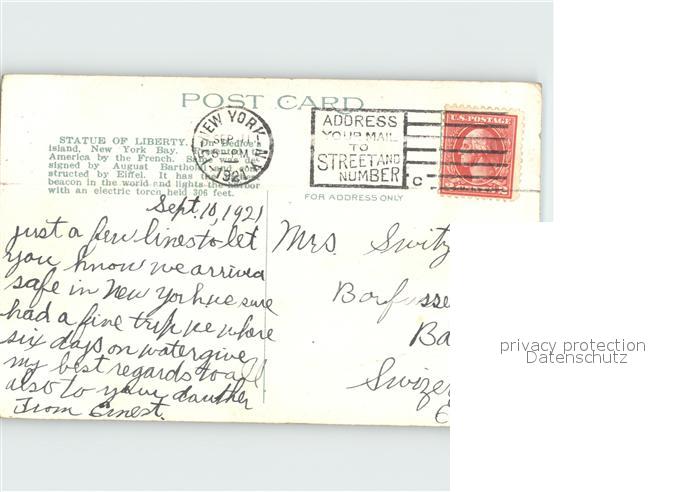 POST CARD
STATUE OF LIBERTY. On Bedloe's
island, New York Bay.
America by the French. was de-
signed by August Bartholdi and con-
structed by Eiffel. It has the
beacon in the world and lights the harbor
with an electric torch held 306 feet.
NEW YORK, N.Y.
SEP 11
5 PM
1921
ADDRESS
YOUR MAIL
TO
STREET AND
NUMBER
C
U.S. POSTAGE
FOR ADDRESS ONLY
Sept. 10, 1921
just a few lines to let
you know we arrived
safe in New York we sure
had a fine trip we where
six days on water give
my best regards to all
also to your dauther
From Ernest.
Mrs. Switz
Barfusse
Ba
Swizer
privacy protection
Datenschutz